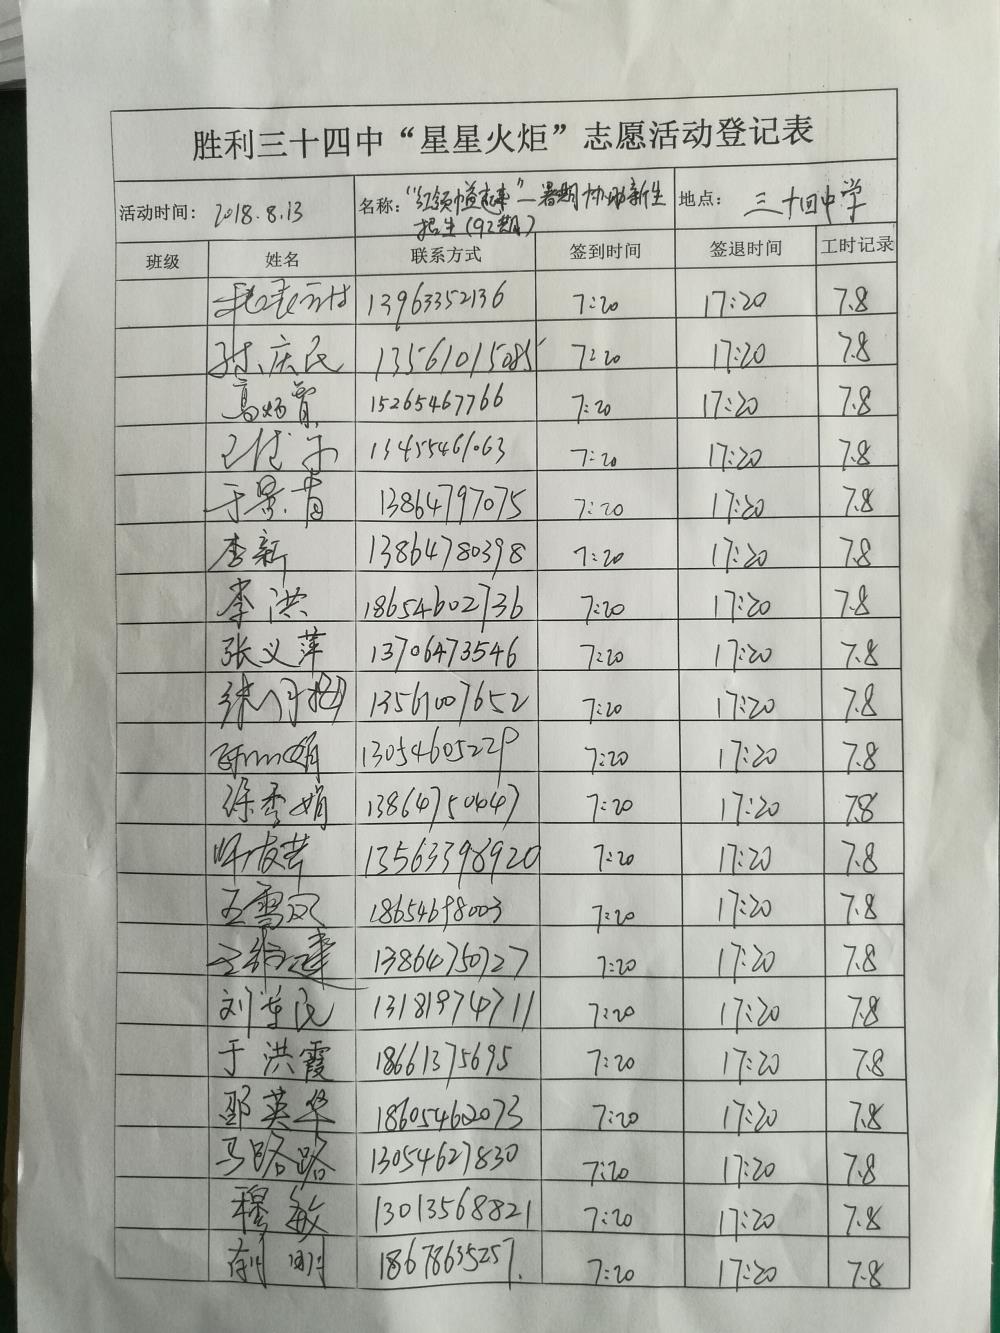 胜利三十四中“星星火炬”志愿活动登记表
活动时间: 2018.8.13 名称: “红领巾益起来”—暑期协助新生 地点: 三十四中学
招生(92期)
班级 姓名 联系方式 签到时间 签退时间 工时记录
13963352136 7:20 17:20 7.8
孙庆民 13561015085 7:20 17:20 7.8
高炳常 15265467766 7:20 17:20 7.8
13455461063 7:20 17:20 7.8
于景青 13864797075 7:20 17:20 7.8
李新 13864780398 7:20 17:20 7.8
李洪 18654602736 7:20 17:20 7.8
张义萍 13706473546 7:20 17:20 7.8
13561007652 7:20 17:20 7.8
13054605229 7:20 17:20 7.8
徐秀娟 13864750447 7:20 17:20 7.8
13563398920 7:20 17:20 7.8
王雪风 18654698003 7:20 17:20 7.8
13864750727 7:20 17:20 7.8
刘荣民 13181974711 7:20 17:20 7.8
于洪霞 18661375695 7:20 17:20 7.8
邵英华 18605462073 7:20 17:20 7.8
马路路 13054627830 7:20 17:20 7.8
穆敏 13013568821 7:20 17:20 7.8
荆刚 18678635257. 7:20 17:20 7.8